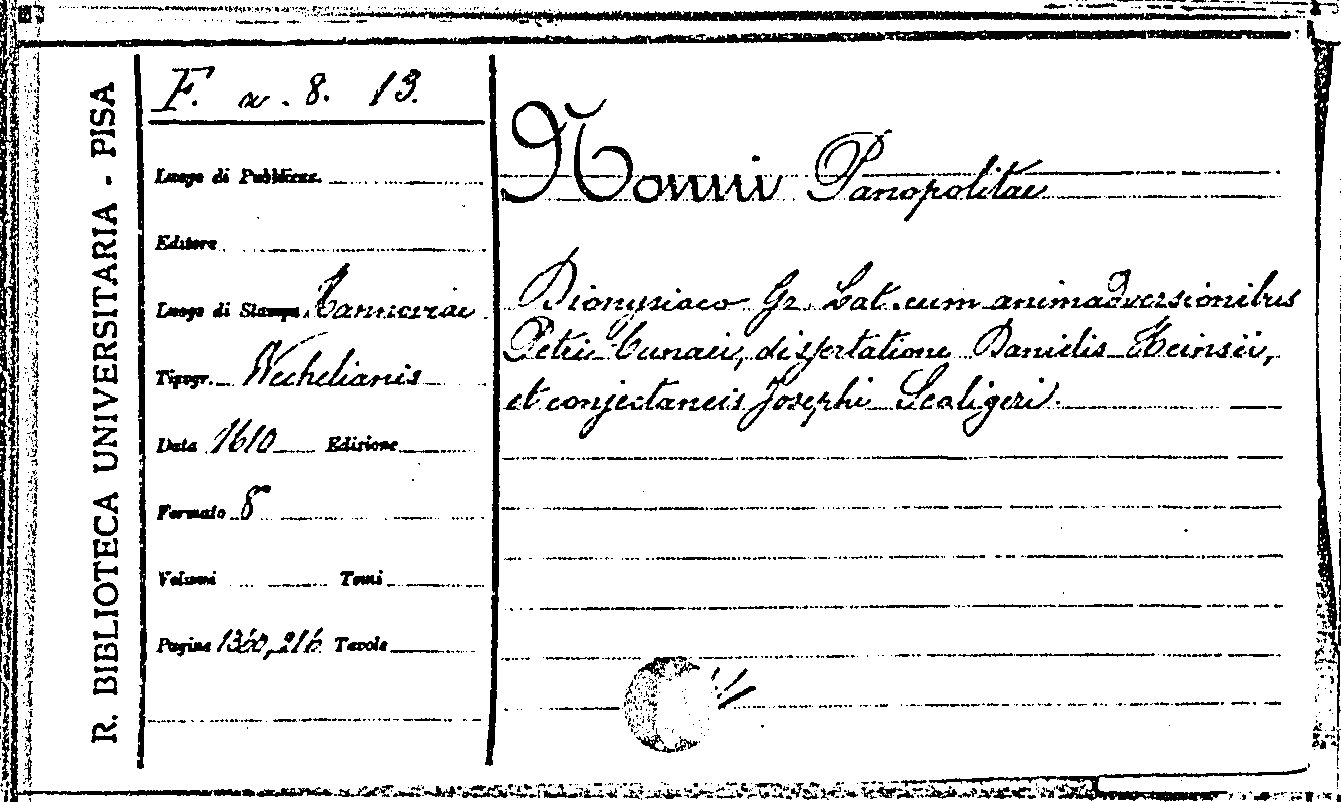 R. BIBLIOTECA UNIVERSITARIA - PISA
F. n. 8. 13.
Luogo di Pubblicaz.
Editore
Luogo di Stampa Hannoviae
Tipogr. Wechelianis
Data 1610 Edizione
Formato 8
Volumi Tomi
Pagine 1360, 216 Tavole
Nonni Panopolitae
Dionysiaca Gr. Lat. cum animadversionibus
Petri Cunaei, dissertatione Danielis Heinsii,
et conjectaneis Josephi Scaligeri.